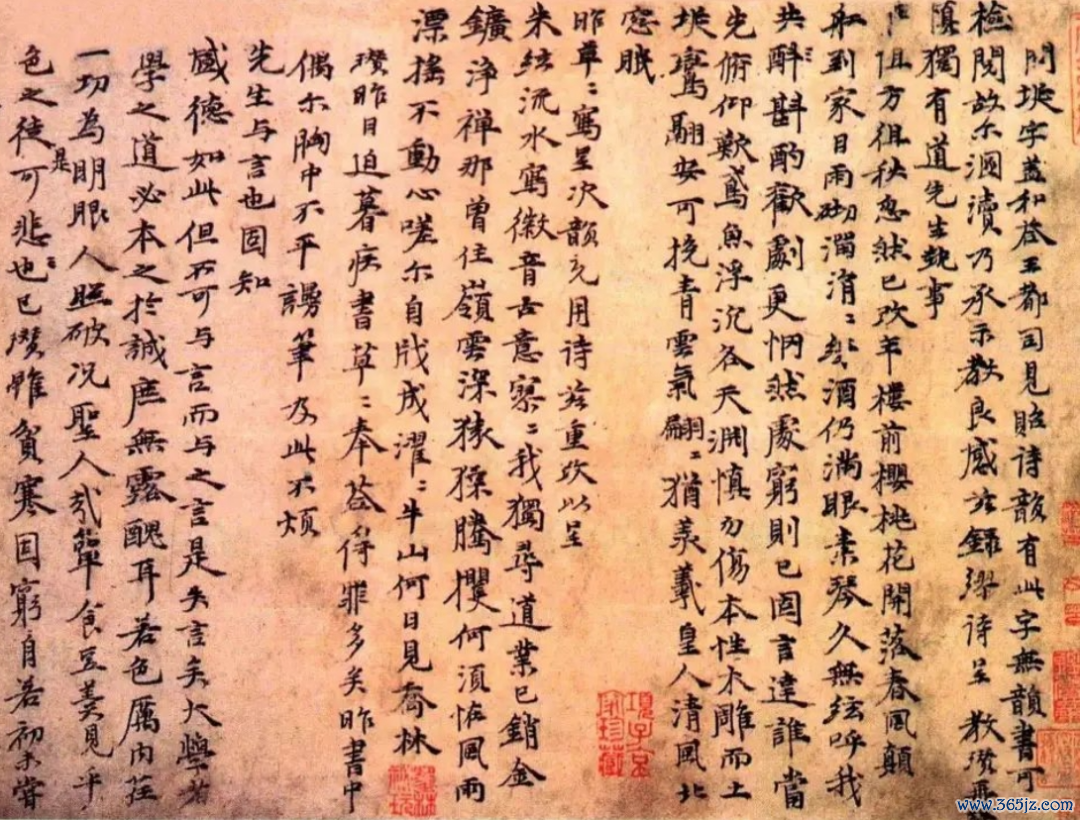 問埉字蓋和答王都司見貽诗韻有此字無韻書可
檢閱故尔溷瀆乃承示教良感錄缪诗呈 教瓚
慎獨有道先生執事
徂方徂秩忽然已改年樓前櫻桃花開落春風顛
到家日雨砌濁涓〻酒仍满眼素琴久無絃呼我
共酧斟酌歡劇更惘然處窮則已固言達誰當
先俯仰歎鳶魚浮沉各天渊慎勿傷本性木雕而土
埉鸞翮安可挽青雲氣翩〻猶羲皇人清風北
窓眠
昨草〻寫呈次韻元用诗兹重改以呈
朱絃流水寫徽音古意寥〻我獨尋道業已銷金
鑛淨禅那曾住嶺雲深猿猱騰攫何須恠風雨
漂搖不動心嗟尔自戕成濯〻牛山何日見喬林
瓚昨日迫暮疾書草〻奉荅得罪多矣昨書中
偶尔胸中不平謾筆及此不煩
先生与言也固知
感德如此但不可与言而与之言是失言矣大學
學之道必本之於誠庶無露醜耳若色厲内荏
一切為明眼人照破况聖人哉簞食豆羹見乎
色之徒是可悲也已瓚雖貧寒固窮自若初未嘗
項子京家珍藏
www.365jz.com